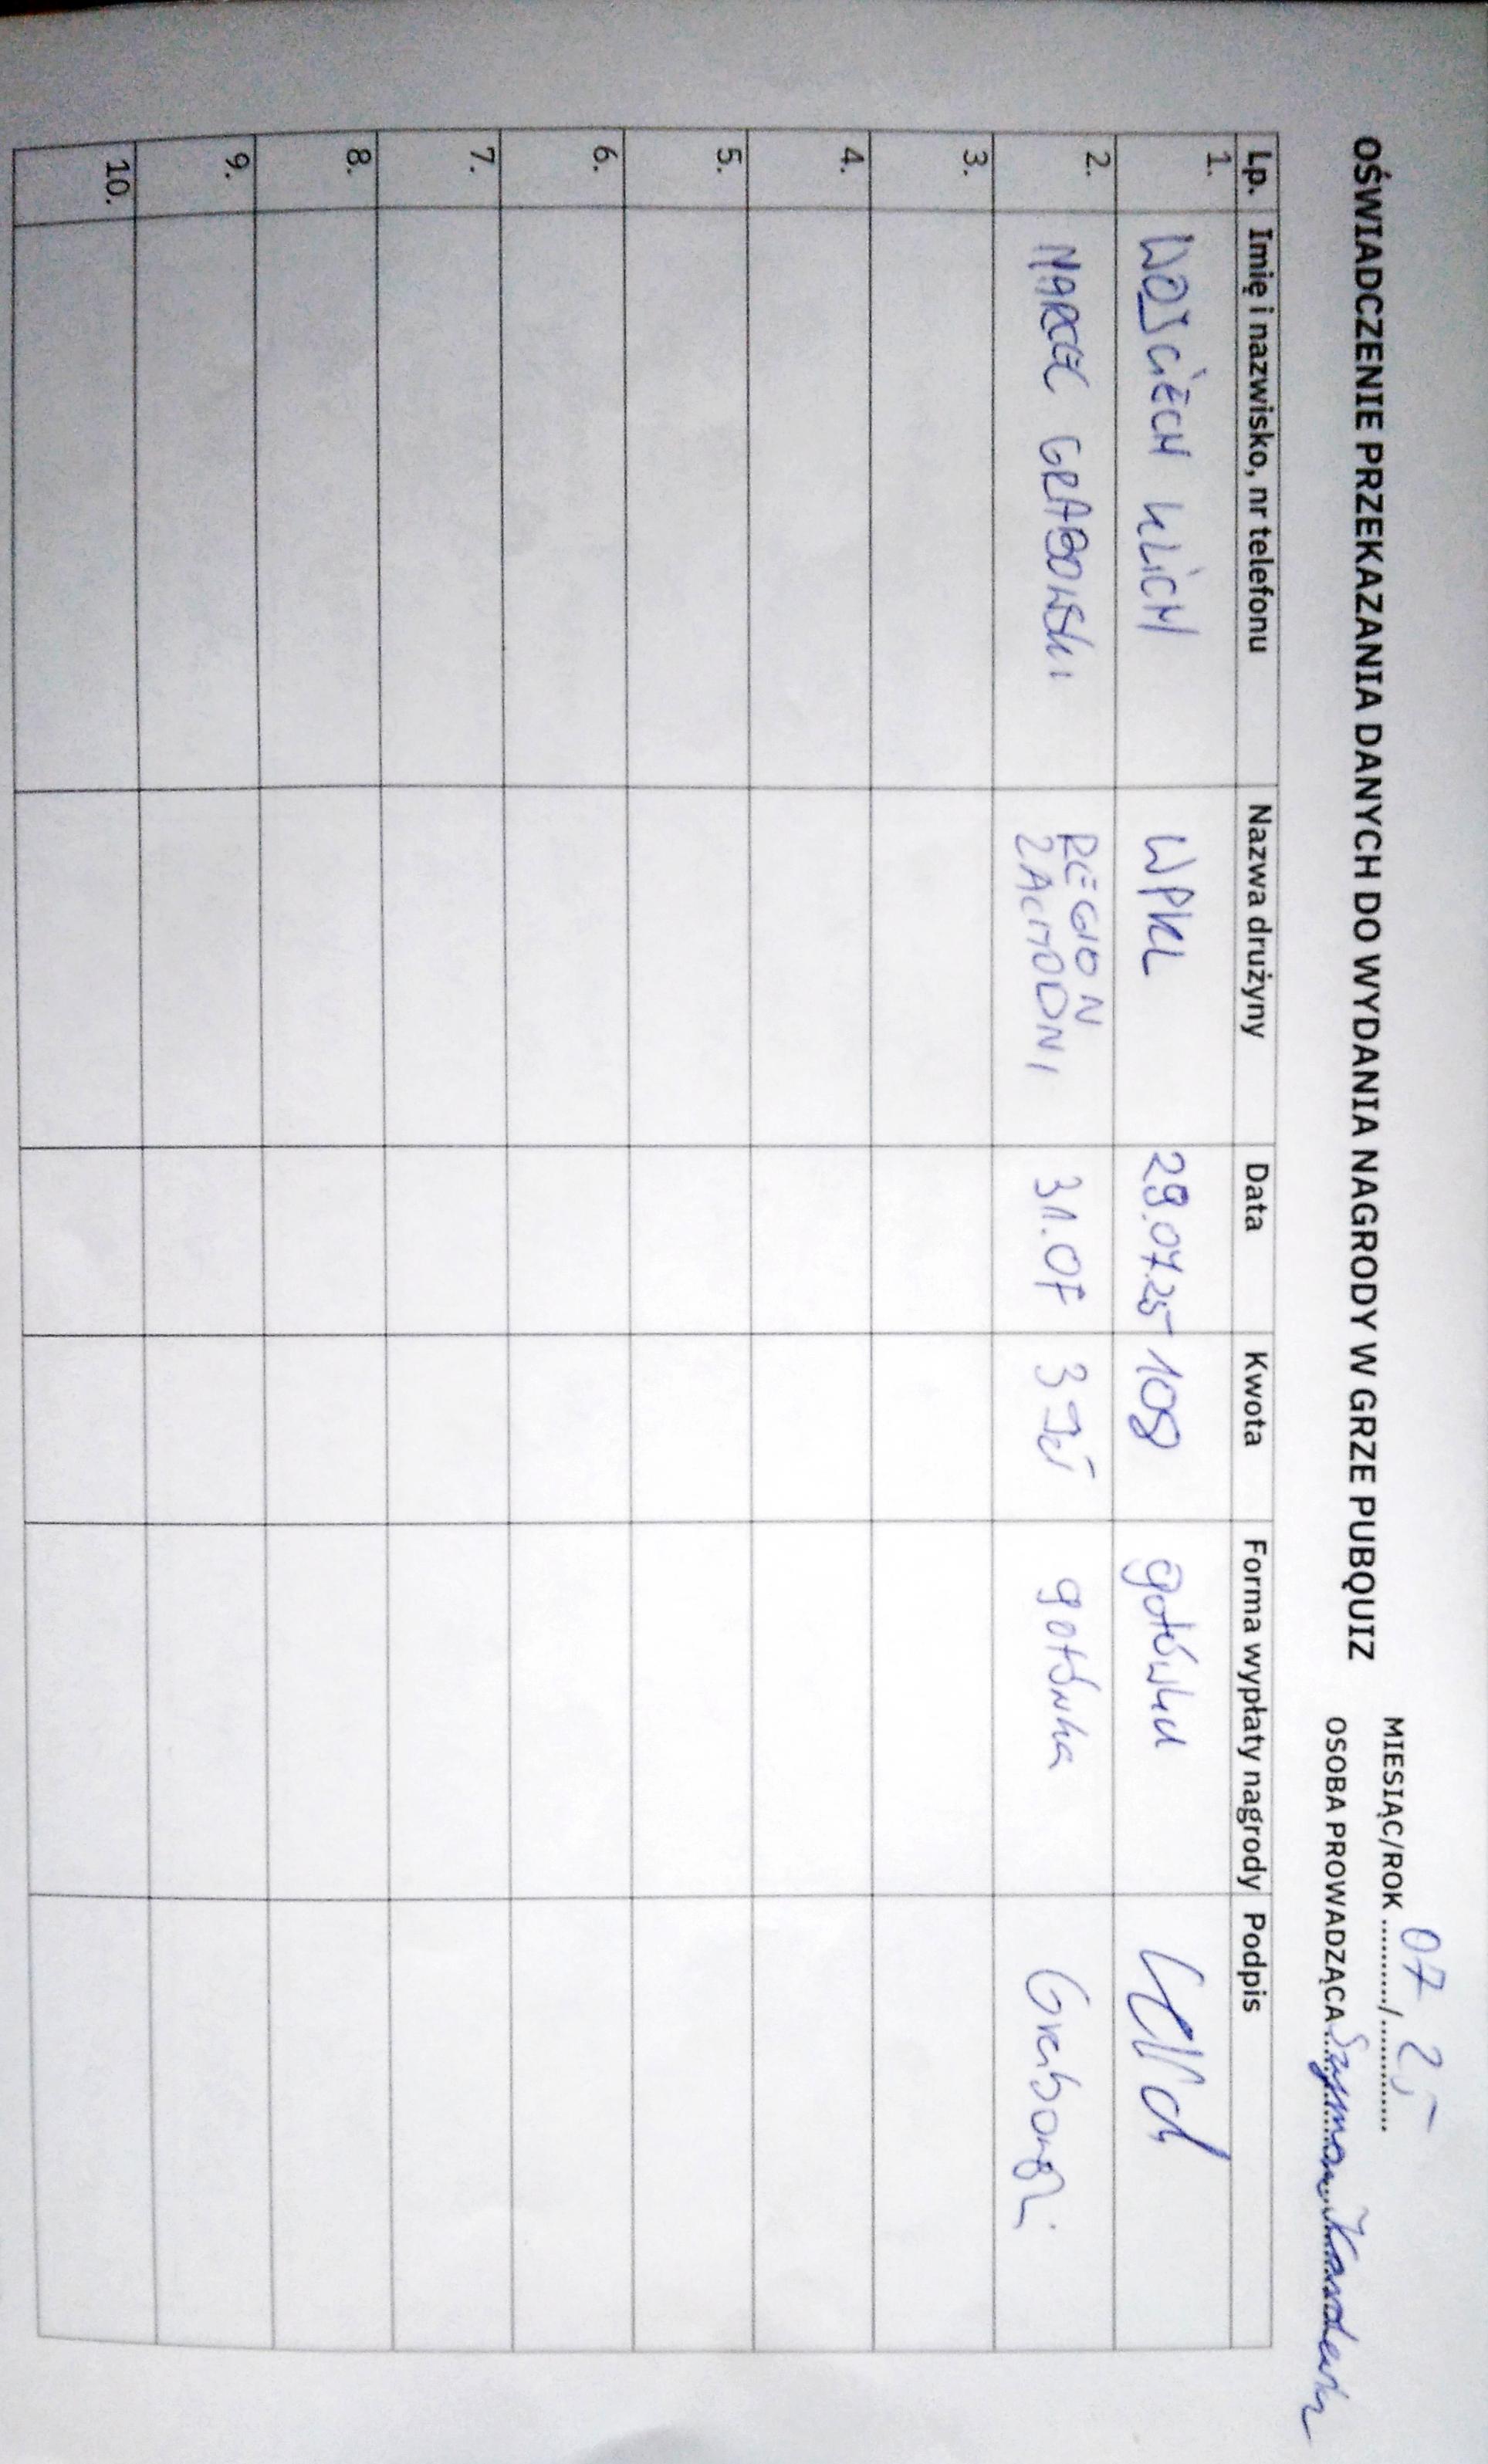 OŚWIADCZENIE PRZEKAZANIA DANYCH DO WYDANIA NAGRODY W GRZE PUBQUIZ
MIESIĄC/ROK 07 / 25
OSOBA PROWADZĄCA Szymon
Lp. Imię i nazwisko, nr telefonu Nazwa drużyny Data Kwota Forma wypłaty nagrody Podpis
1. WOJCIECH KLICH WPKL 29.07.25 108 gotówka
2. MARCEL GRABOWSKI REGION ZACHODNI 31.07 gotówka Grabowski
3.
4.
5.
6.
7.
8.
9.
10.